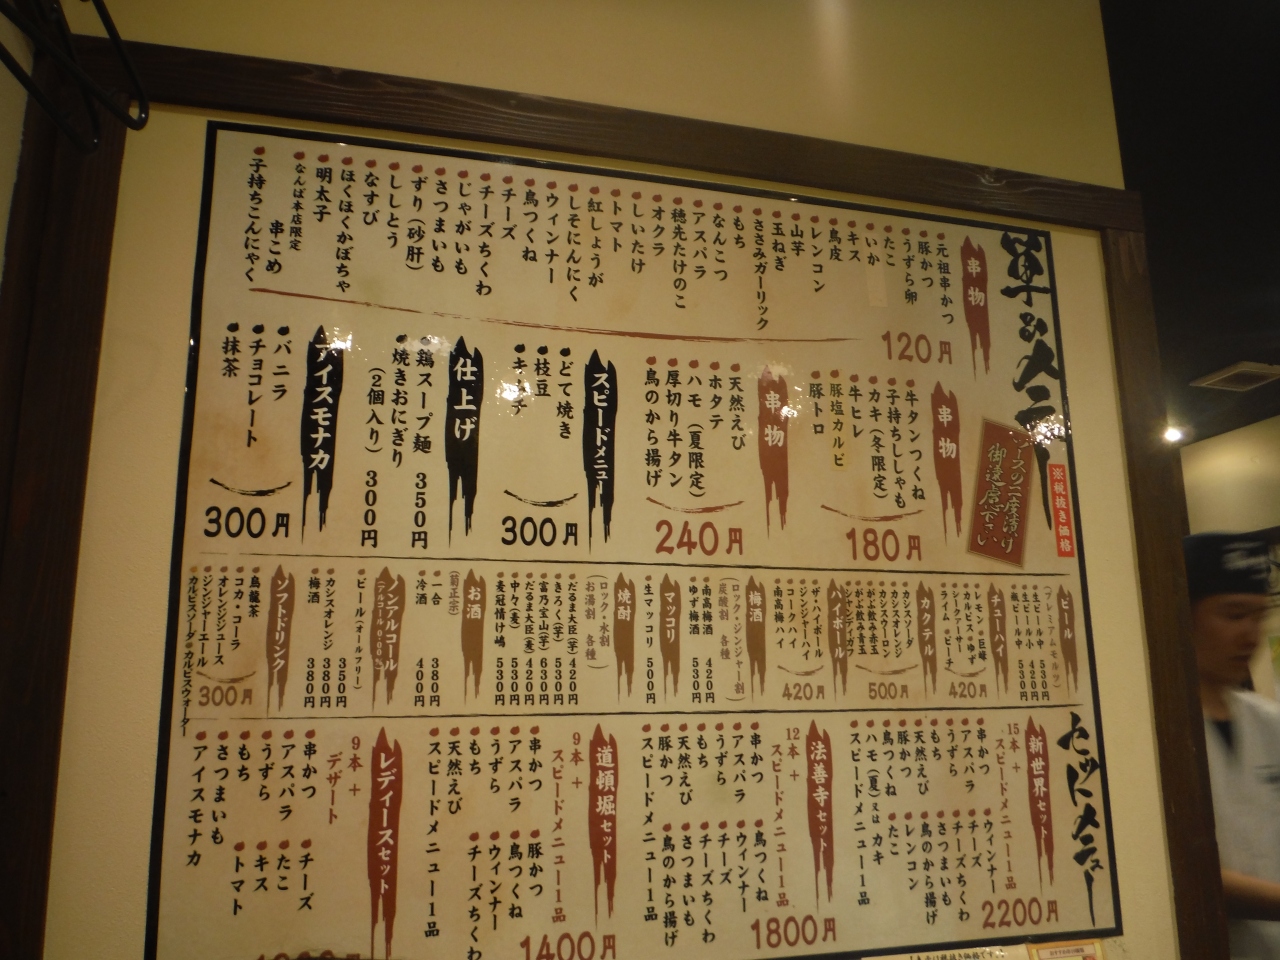 単品メニュー
※税抜き価格
ソースの二度漬け
御遠慮下さい
串物
元祖串かつ
豚かつ
うずら卵
たこ
いか
キス
鳥皮
レンコン
山芋
玉ねぎ
ささみガーリック
もち
なんこつ
アスパラ
穂先たけのこ
オクラ
しいたけ
トマト
紅しょうが
しそにんにく
ウィンナー
鳥つくね
チーズ
チーズちくわ
じゃがいも
さつまいも
ずり(砂肝)
ししとう
なすび
ほくほくかぼちゃ
明太子
なんば本店限定
串こめ
子持ちこんにゃく
120円
串物
牛タンつくね
子持ちししゃも
カキ(冬限定)
牛ヒレ
豚塩カルビ
豚トロ
180円
串物
天然えび
ホタテ
ハモ(夏限定)
厚切り牛タン
鳥のから揚げ
240円
スピードメニュー
どて焼き
枝豆
キムチ
300円
仕上げ
鶏スープ麺 350円
焼きおにぎり
(2個入り) 300円
アイスモナカ
バニラ
チョコレート
抹茶
300円
ビール
(プレミアムモルツ)
生ビール中 530円
生ビール小 420円
瓶ビール中 530円
チューハイ
レモン 巨峰
カルピス ゆず
シークァーサー
ライム ピーチ
420円
カクテル
カシスソーダ
カシスオレンジ
カシスウーロン
がぶ飲み赤玉
がぶ飲み青玉
シャンディガフ
500円
ハイボール
ザ・ハイボール
ジンジャーハイ
コークハイ
南高梅ハイ
420円
梅酒
(ロック・ジンジャー割
炭酸割 各種)
南高梅酒 420円
ゆず梅酒 500円
マッコリ
生マッコリ 500円
焼酎
(ロック・水割
お湯割 各種)
だるま大臣(芋) 420円
きろく(芋) 530円
富乃宝山(芋) 630円
だるま大臣(麦) 420円
中々(麦) 530円
麦冠情け嶋 530円
お酒
(菊正宗)
一合 380円
冷酒 400円
ノンアルコール
(アルコール0.00%)
ビール(オールフリー) 350円
カシスオレンジ 380円
梅酒 380円
ソフトドリンク
烏龍茶
コカ・コーラ
オレンジジュース
ジンジャーエール
カルピスソーダ カルピスウォーター
300円
セットメニュー
新世界セット
15本+
スピードメニュー1品
串かつ
アスパラ
うずら
もち
天然えび
豚かつ
鳥つくね
ハモ(夏)又はカキ
スピードメニュー1品
ウィンナー
チーズちくわ
チーズ
さつまいも
鳥のから揚げ
レンコン
たこ
2200円
法善寺セット
12本+
スピードメニュー1品
串かつ
アスパラ
うずら
もち
天然えび
豚かつ
スピードメニュー1品
鳥つくね
ウィンナー
チーズ
チーズちくわ
さつまいも
鳥のから揚げ
1800円
道頓堀セット
9本+
スピードメニュー1品
串かつ
アスパラ
うずら
もち
天然えび
スピードメニュー1品
豚かつ
鳥つくね
ウィンナー
チーズちくわ
1400円
レディースセット
9本+
デザート
串かつ
アスパラ
うずら
もち
さつまいも
アイスモナカ
チーズ
たこ
キス
トマト